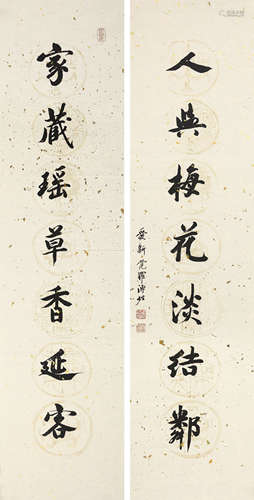 人與梅花淡結鄰
愛新覺羅溥
家藏瑤草香延客